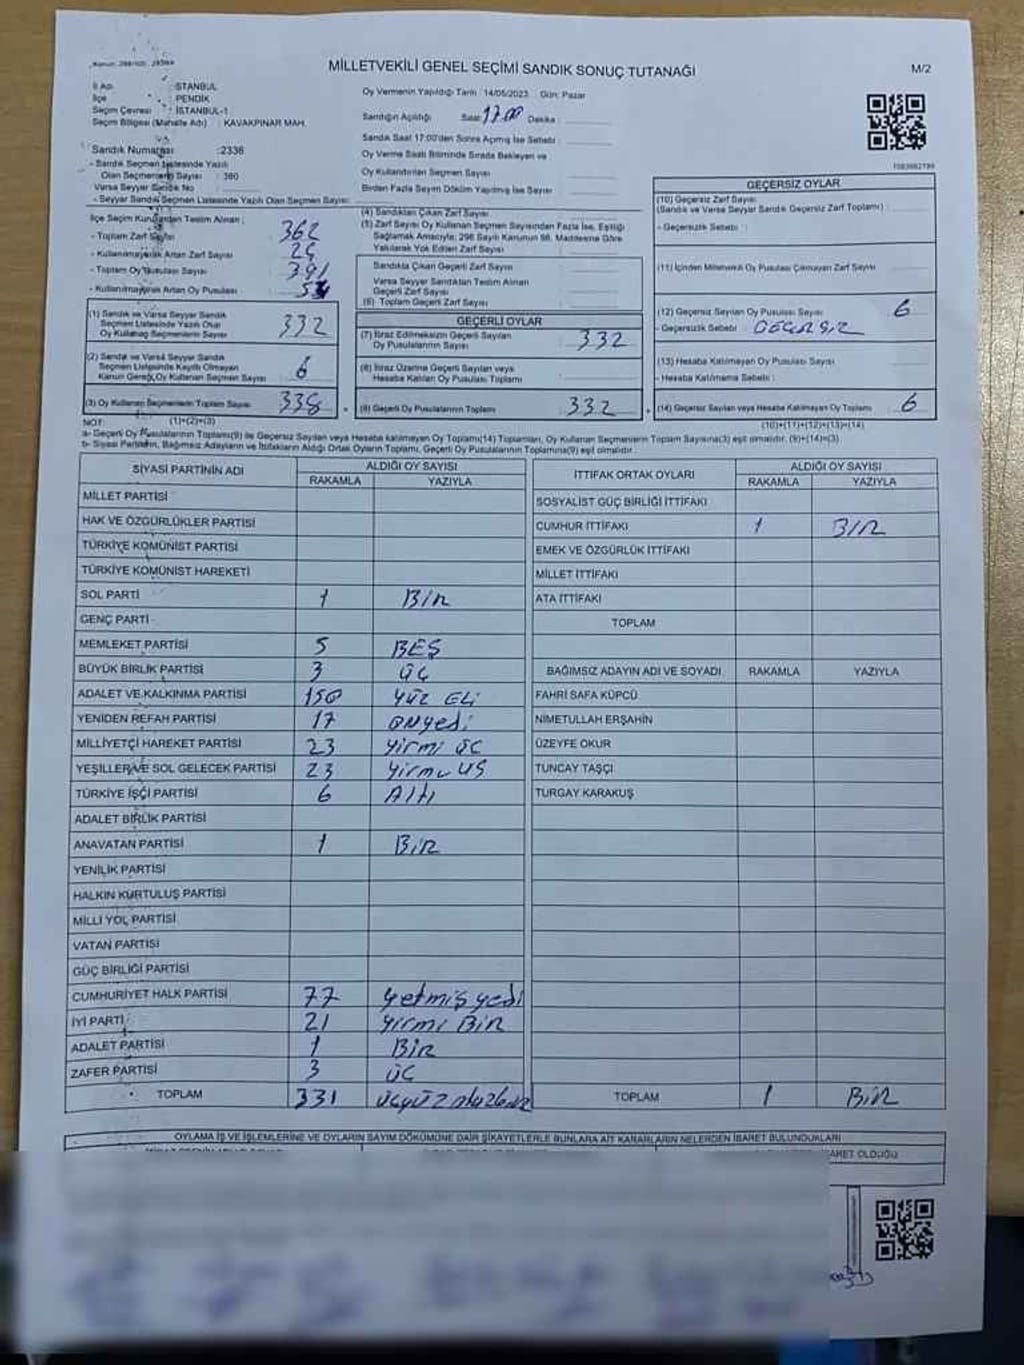 MİLLETVEKİLİ GENEL SEÇİMİ SANDIK SONUÇ TUTANAĞI
M/2
İl Adı : İSTANBUL
İlçe : PENDİK
Seçim Çevresi : İSTANBUL-1
Seçim Bölgesi (Mahalle Adı) : KAVAKPINAR MAH.
Sandık Numarası :2336
- Sandık Seçmen Listesinde Yazılı
Olan Seçmenlerin Sayısı : 360
Varsa Seyyar Sandık No
- Seyyar Sandık Seçmen Listesinde Yazılı Olan Seçmen Sayısı:
Oy Vermenin Yapıldığı Tarih : 14/05/2023 Gün: Pazar
Sandığın Açıldığı Saat: 17.00 Dakika :
Sandık Saat 17:00'den Sonra Açılmış İse Sebebi :
Oy Verme Saati Bitiminde Sırada Bekleyen ve
Oy Kullandırılan Seçmen Sayısı
Birden Fazla Sayım Döküm Yapılmış İse Sayısı
İlçe Seçim Kurulundan Teslim Alınan ;
- Toplam Zarf Sayısı 362
- Kullanılmayarak Artan Zarf Sayısı 24
- Toplam Oy Pusulası Sayısı 391
- Kullanılmayarak Artan Oy Pusulası
(1) Sandık ve Varsa Seyyar Sandık
Seçmen Listesinde Yazılı Olup
Oy Kullanan Seçmenlerin Sayısı 332
(2) Sandık ve Varsa Seyyar Sandık
Seçmen Listesinde Kayıtlı Olmayan
Kanun Gereği Oy Kullanan Seçmen Sayısı 6
(3) Oy Kullanan Seçmenlerin Toplam Sayısı 338
(1)+(2)=(3)
(4) Sandıktan Çıkan Zarf Sayısı
(5) Zarf Sayısı Oy Kullanan Seçmen Sayısından Fazla İse, Eşitliği
Sağlamak Amacıyla; 298 Sayılı Kanunun 98. Maddesine Göre
Yakılarak Yok Edilen Zarf Sayısı
Sandıkta Çıkan Geçerli Zarf Sayısı
Varsa Seyyar Sandıktan Teslim Alınan
Geçerli Zarf Sayısı
(6) Toplam Geçerli Zarf Sayısı
GEÇERLİ OYLAR
(7) İtiraz Edilmeksizin Geçerli Sayılan
Oy Pusulalarının Sayısı 332
(8) İtiraz Üzerine Geçerli Sayılan veya
Hesaba Katılan Oy Pusulası Toplamı
(9) Geçerli Oy Pusulalarının Toplamı 332
GEÇERSİZ OYLAR
(10) Geçersiz Zarf Sayısı
(Sandık ve Varsa Seyyar Sandık Geçersiz Zarf Toplamı) :
- Geçersizlik Sebebi :
(11) İçinden Milletvekili Oy Pusulası Çıkmayan Zarf Sayısı
(12) Geçersiz Sayılan Oy Pusulası Sayısı 6
- Geçersizlik Sebebi GEÇERSİZ
(13) Hesaba Katılmayan Oy Pusulası Sayısı
- Hesaba Katılmama Sebebi :
(14) Geçersiz Sayılan veya Hesaba Katılmayan Oy Toplamı 6
(10)+(11)+(12)+(13)=(14)
NOT:
a- Geçerli Oy Pusulalarının Toplamı(9) ile Geçersiz Sayılan veya Hesaba katılmayan Oy Toplamı(14) Toplamları, Oy Kullanan Seçmenlerin Toplam Sayısına(3) eşit olmalıdır. (9)+(14)=(3)
b- Siyasi Partilerin, Bağımsız Adayların ve İttifakların Aldığı Ortak Oyların Toplamı, Geçerli Oy Pusulalarının Toplamına(9) eşit olmalıdır.
SİYASİ PARTİNİN ADI ALDIĞI OY SAYISI
RAKAMLA YAZIYLA
MİLLET PARTİSİ
HAK VE ÖZGÜRLÜKLER PARTİSİ
TÜRKİYE KOMÜNİST PARTİSİ
TÜRKİYE KOMÜNİST HAREKETİ
SOL PARTİ 1 BİR
GENÇ PARTİ
MEMLEKET PARTİSİ 5 BEŞ
BÜYÜK BİRLİK PARTİSİ 3 ÜÇ
ADALET VE KALKINMA PARTİSİ 150 YÜZ ELİ
YENİDEN REFAH PARTİSİ 17 ONyedi
MİLLİYETÇİ HAREKET PARTİSİ 23 yirmi üç
YEŞİLLER VE SOL GELECEK PARTİSİ 23
TÜRKİYE İŞÇİ PARTİSİ 6 Altı
ADALET BİRLİK PARTİSİ
ANAVATAN PARTİSİ 1 BİR
YENİLİK PARTİSİ
HALKIN KURTULUŞ PARTİSİ
MİLLİ YOL PARTİSİ
VATAN PARTİSİ
GÜÇ BİRLİĞİ PARTİSİ
CUMHURİYET HALK PARTİSİ 77 yetmiş yedi
İYİ PARTİ 21 yirmi BİR
ADALET PARTİSİ 1 BİR
ZAFER PARTİSİ 3 ÜÇ
TOPLAM 331
İTTİFAK ORTAK OYLARI ALDIĞI OY SAYISI
RAKAMLA YAZIYLA
SOSYALİST GÜÇ BİRLİĞİ İTTİFAKI
CUMHUR İTTİFAKI 1 BİR
EMEK VE ÖZGÜRLÜK İTTİFAKI
MİLLET İTTİFAKI
ATA İTTİFAKI
TOPLAM
BAĞIMSIZ ADAYIN ADI VE SOYADI RAKAMLA YAZIYLA
FAHRİ SAFA KÜPCÜ
NİMETULLAH ERŞAHİN
ÜZEYFE OKUR
TUNCAY TAŞÇI
TURGAY KARAKUŞ
TOPLAM 1 BİR
OYLAMA İŞ VE İŞLEMLERİNE VE OYLARIN SAYIM DÖKÜMÜNE DAİR ŞİKAYETLERLE BUNLARA AİT KARARLARIN NELERDEN İBARET BULUNDUKLARI